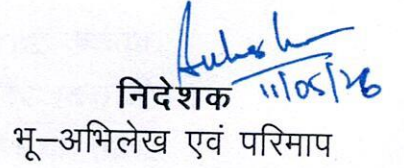 11/05/26
निदेशक
भू-अभिलेख एवं परिमाप